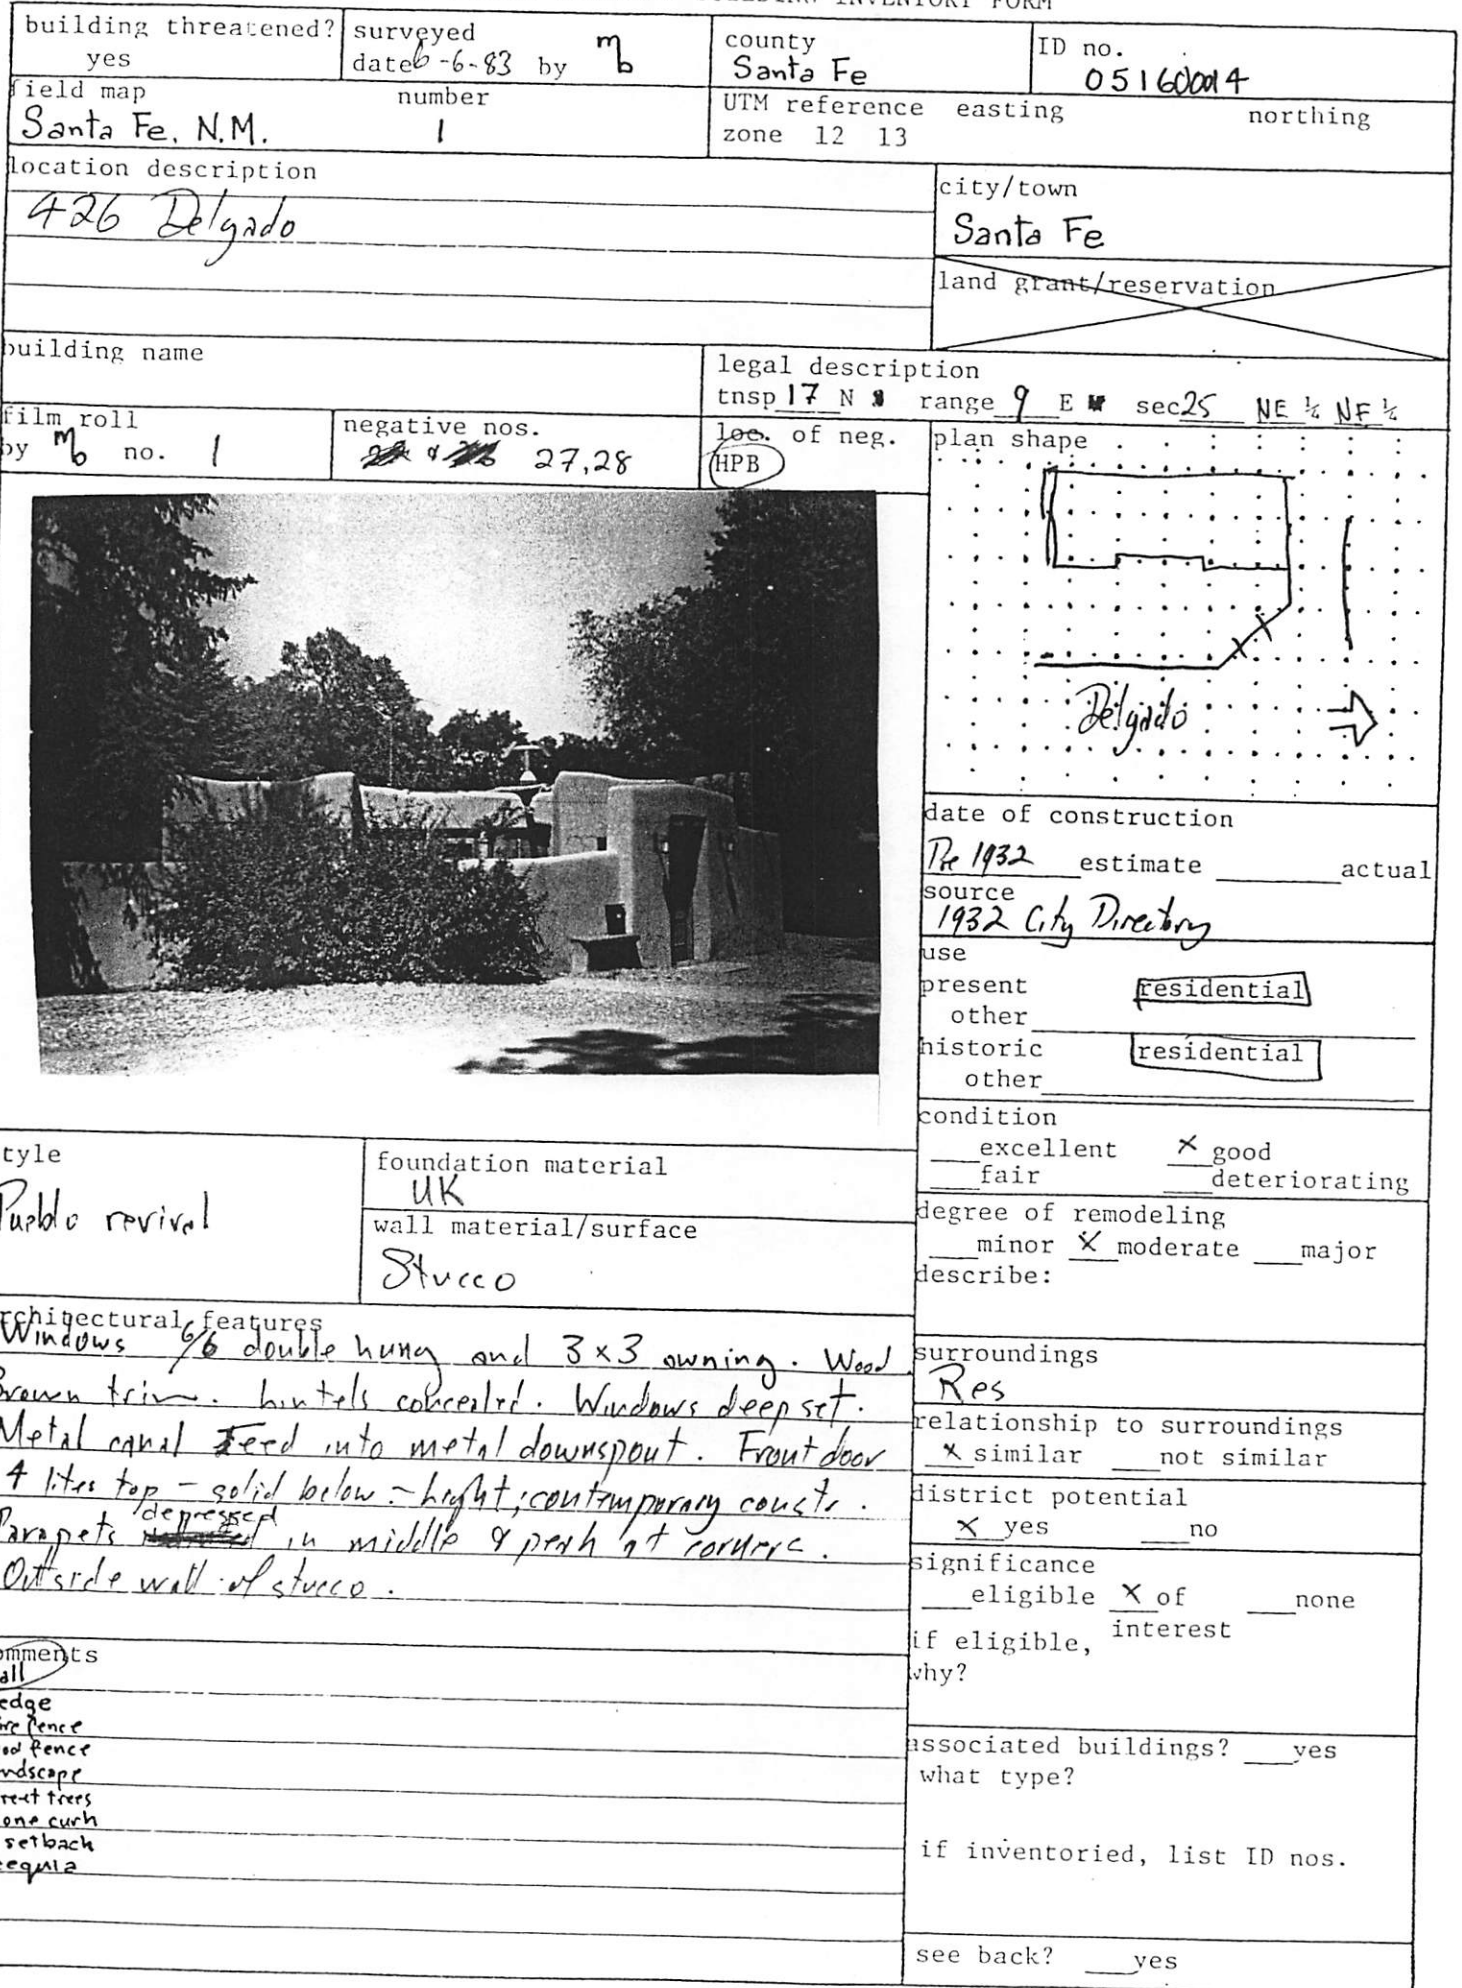 INVENTORY FORM
building threatened?
yes
surveyed
date 6-6-83 by mb
county
Santa Fe
ID no.
field map number
Santa Fe, N.M. 1
UTM reference easting northing
zone 12 13
location description
426 Delgado
city/town
Santa Fe
land grant/reservation
building name
legal description
tnsp 17 N range 9 E sec 25 NE ¼ NE ¼
film roll
by mb no. 1
negative nos.
27,28
loc. of neg.
HPB
plan shape
Delgado
date of construction
Pre 1932 estimate actual
source
1932 City Directory
use
present residential
other
historic residential
other
condition
excellent X good
fair deteriorating
tyle
Pueblo revival
foundation material
UK
wall material/surface
Stucco
degree of remodeling
minor X moderate major
describe:
rchitectural features
Windows 6/6 double hung and 3x3 awning. Wood
Brown trim. Lintels concealed. Windows deep set.
Metal canal Feed into metal downspout. Front door
4 lites top - solid below - contemporary constr.
Parapets depressed in middle & peak at corners.
Outside wall of stucco.
surroundings
Res
relationship to surroundings
X similar not similar
district potential
X yes no
significance
eligible X of none
interest
if eligible,
why?
omments
all
edge
ire fence
ood fence
ndscape
reet trees
one curb
setback
cequia
associated buildings? yes
what type?
if inventoried, list ID nos.
see back? yes